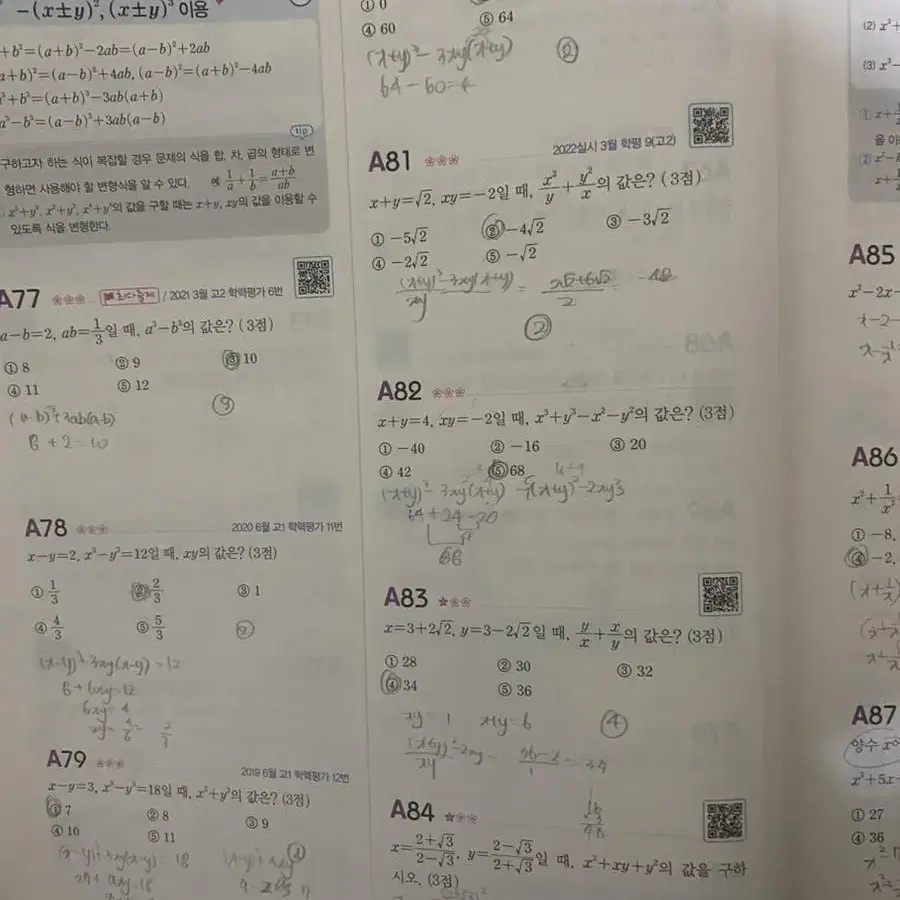 -(x±y)², (x±y)³ 이용
+b²=(a+b)²-2ab=(a-b)²+2ab
a+b)²=(a-b)²+4ab, (a-b)²=(a+b)²-4ab
³+b³=(a+b)³-3ab(a+b)
a³-b³=(a-b)³+3ab(a-b)
tip
구하고자 하는 식이 복잡할 경우 문제의 식을 합, 차, 곱의 형태로 변
형하면 사용해야 할 변형식을 알 수 있다. 예 1/a+1/b=(a+b)/ab
x²+y², x³+y³, x⁴+y⁴의 값을 구할 때는 x+y, xy의 값을 이용할 수
있도록 식을 변형한다.
A77 최다출제 / 2021 3월 고2 학력평가 6번
a-b=2, ab=1/3일 때, a³-b³의 값은? (3점)
① 8 ② 9 ③ 10
④ 11 ⑤ 12
③
(a-b)³+3ab(a-b)
8+2=10
A78 2020 6월 고1 학력평가 11번
x-y=2, x³-y³=12일 때, xy의 값은? (3점)
① 1/3 ② 2/3 ③ 1
④ 4/3 ⑤ 5/3
②
(x-y)³+3xy(x-y)=12
8+6xy=12
6xy=4
xy=4/6=2/3
A79 2019 6월 고1 학력평가 12번
x-y=3, x³-y³=18일 때, x²+y²의 값은? (3점)
① 7 ② 8 ③ 9
④ 10 ⑤ 11
①
(x-y)³+3xy(x-y)=18
27+9xy=18
① 0
④ 60 ⑤ 64
(x+y)³-3xy(x+y)
②
64-60=4
A81 2022실시 3월 학평 9(고2)
x+y=√2, xy=-2일 때, x²/y+y²/x의 값은? (3점)
① -5√2 ② -4√2 ③ -3√2
④ -2√2 ⑤ -√2
((x+y)³-3xy(x+y))/xy = (2√2+6√2)/2 -4√2
②
A82
x+y=4, xy=-2일 때, x³+y³-x²-y²의 값은? (3점)
① -40 ② -16 ③ 20
④ 42 ⑤ 68
(x+y)³-3xy(x+y)-{(x+y)²-2xy}
64+24-20
68
A83
x=3+2√2, y=3-2√2일 때, y/x+x/y의 값은? (3점)
① 28 ② 30 ③ 32
④ 34 ⑤ 36
xy=1 x+y=6 ④
((x+y)²-2xy)/xy = (36-2)/1 = 34
A84
x=(2+√3)/(2-√3), y=(2-√3)/(2+√3)일 때, x²+xy+y²의 값을 구하
시오. (3점)
16
×3
48
(2) x²+
(3) x³-
① x+1
을 이
② x²-
x+1
A85
x²-2x-
x-2-
A86
x²+1/x²
① -8,
④ -2,
(x+1/x)
A87
양수
x²+5x-
① 27
④ 36